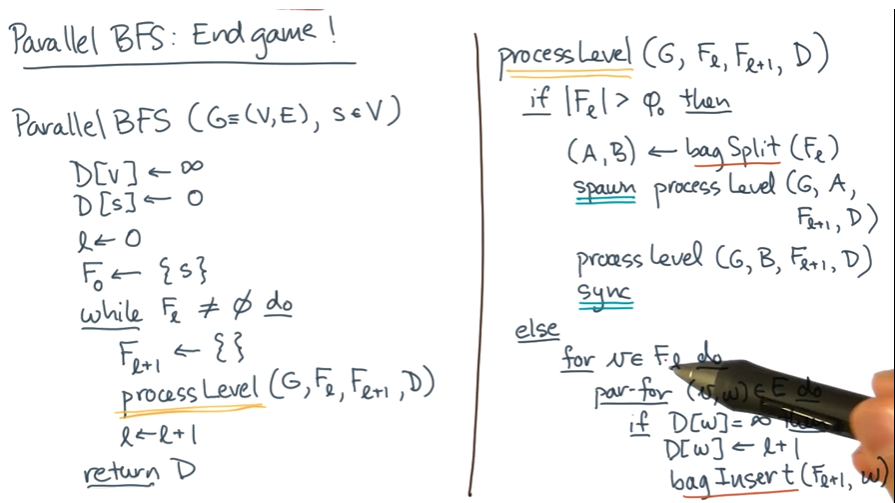 Parallel BFS: End game!
Parallel BFS (G≡(V,E), s∈V)
D[v] ← ∞
D[s] ← 0
l ← 0
F₀ ← {s}
while Fₗ ≠ ∅ do
Fₗ₊₁ ← {}
process Level (G, Fₗ, Fₗ₊₁, D)
l ← l+1
return D
process Level (G, Fₗ, Fₗ₊₁, D)
if |Fₗ| > φ₀ then
(A,B) ← bag Split (Fₗ)
spawn process Level (G, A,
Fₗ₊₁, D)
process Level (G, B, Fₗ₊₁, D)
sync
else
for v ∈ Fₗ do
par-for (v,w) ∈ E do
if D[w] = ∞ then
D[w] ← l+1
bag Insert (Fₗ₊₁, w)